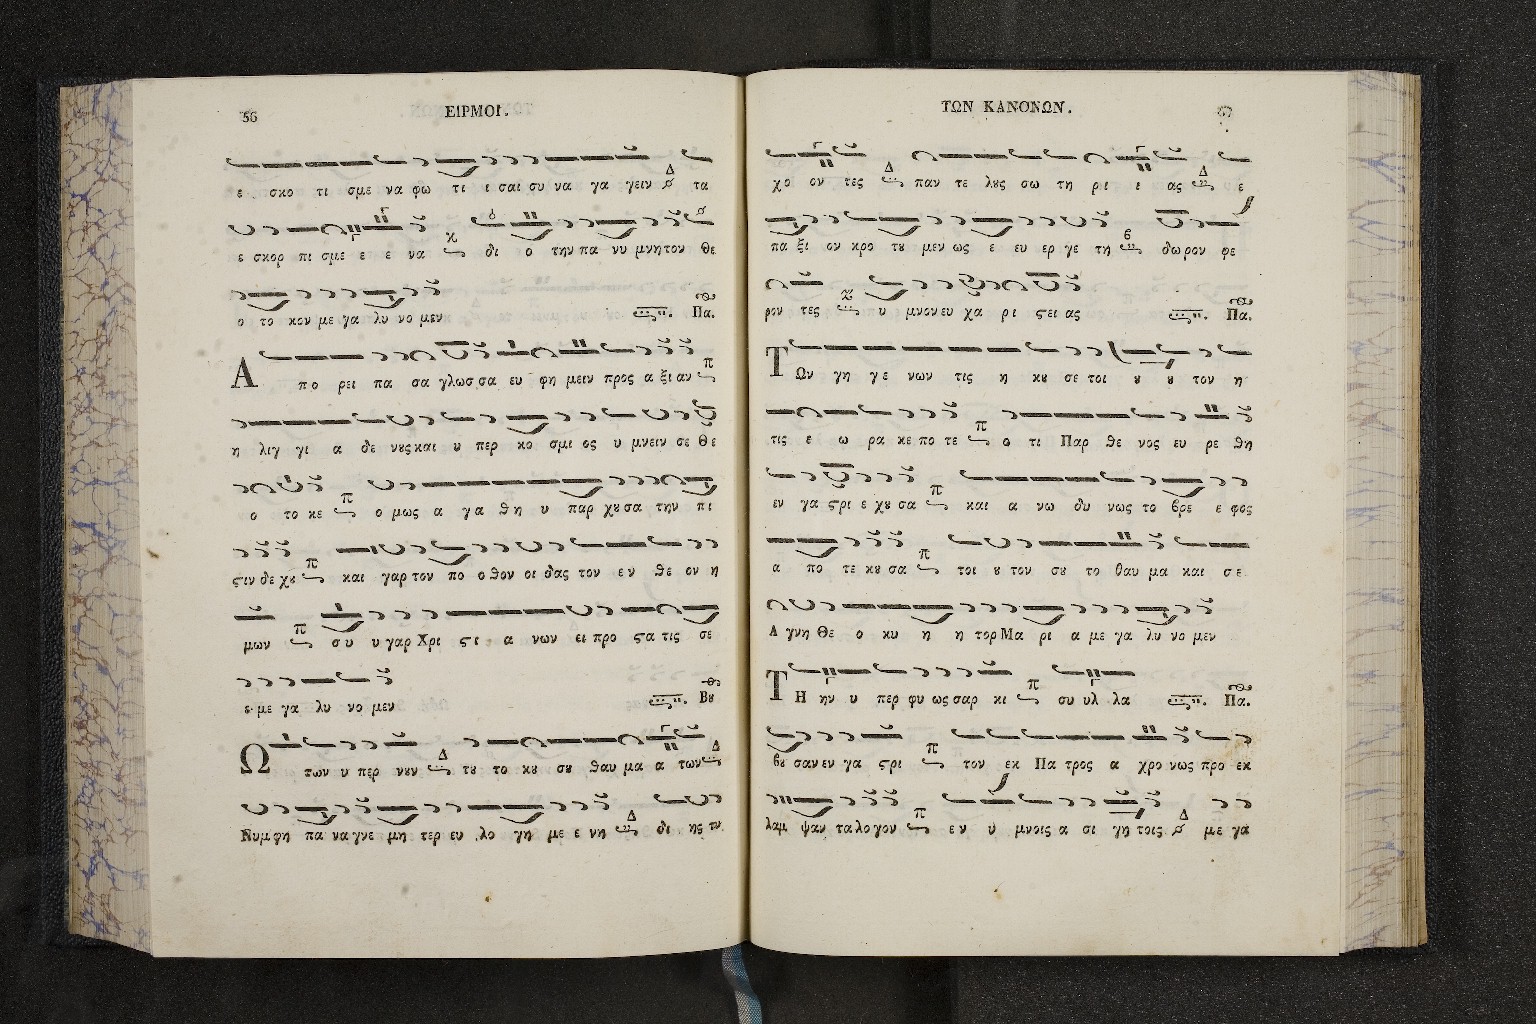 56
ΕΙΡΜΟΙ.
ε σκο τι σμε να φω τι ι σαι συ να γα γειν Δ τα
ε σκορ πι σμε ε ε να δι ο την πα νυ μνη τον θε
ο το κον με γα λυ νο μεν Πα.
Α πο ρει πα σα γλωσ σα ευ φη μειν προς α ξι αν π
η λιγ γι α δε νους και υ περ κο σμι ος υ μνειν σε Θε
ο το κε π ο μως α γα θη υ παρ χου σα την πι
ϛιν δε χου π και γαρ τον πο ο θον οι δας τον εν θε ον η
μων π συ υ γαρ Χρι ϛι α νων ει προ ϛα τις σε
ε με γα λυ νο μεν Βου
Ω των υ περ νουν Δ του το κου σου θαυ μα α των Δ
Νυμ φη πα να γνε μη τερ ευ λο γη με ε νη Δ δι ης τυ
ΤΩΝ ΚΑΝΟΝΩΝ.
χο ον τες Δ παν τε λους σω τη ρι ι ας Δ ε
πα ξι ον κρο του μεν ως ε ευ ερ γε τη β δω ρον φε
ρον τες υ μνον ευ χα ρι ϛει ας Πα.
Των γη γε νων τις η κου σε τοι ου ου τον η
τις ε ω ρα κε πο τε π ο τι Παρ θε νος ευ ρε θη
εν γα ϛρι ε χου σα π και α νω δυ νως το βρε ε φος
α πο τε κου σα π τοι ου τον σου το θαυ μα και σε
Α γνη Θε ο κυ η η τορ Μα ρι α με γα λυ νο μεν
Τη ην υ περ φυ ως σαρ κι π συ υλ λα Πα.
βου σαν εν γα ϛρι π τον εκ Πα τρος α χρο νως προ εκ
λαμ ψαν τα λο γον π εν υ μνοις α σι γη τοις Δ με γα